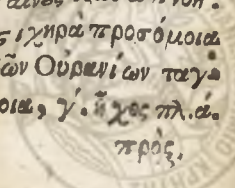 ς ιχηρὰ προσόμοια
ῶν Οὐρανίων ταγ-
οια, γ΄. ἦχος πλ. ά.
πρὸς.